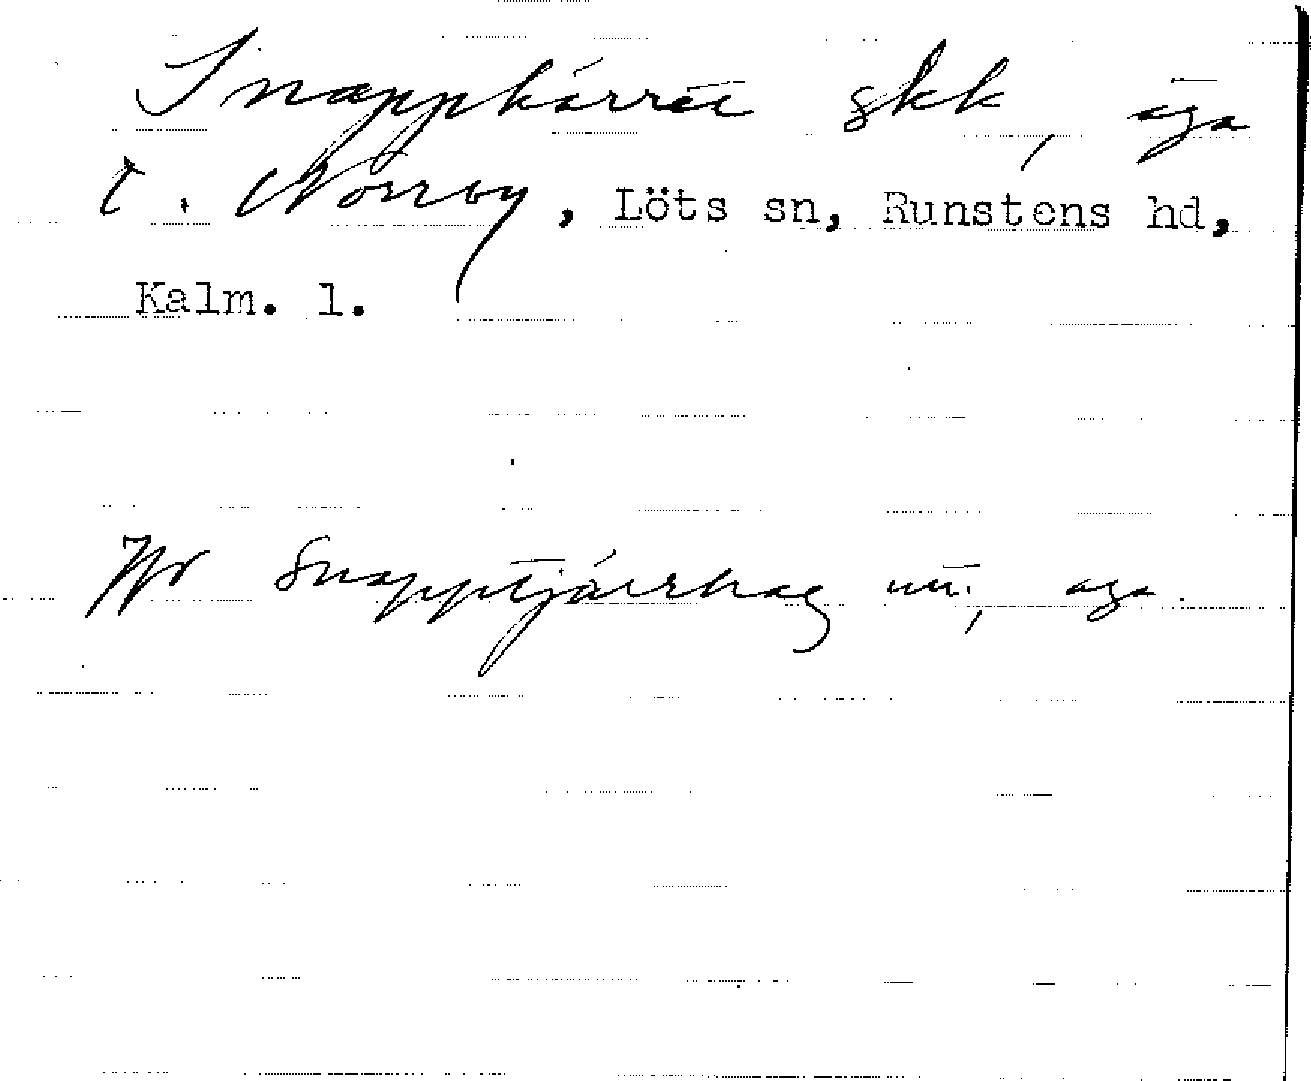 Snappkärret skk, äga
t. Norrby, Löts sn, Runstens hd,
Kalm. l.
Jfr Snapptjärrhag uti, äga.